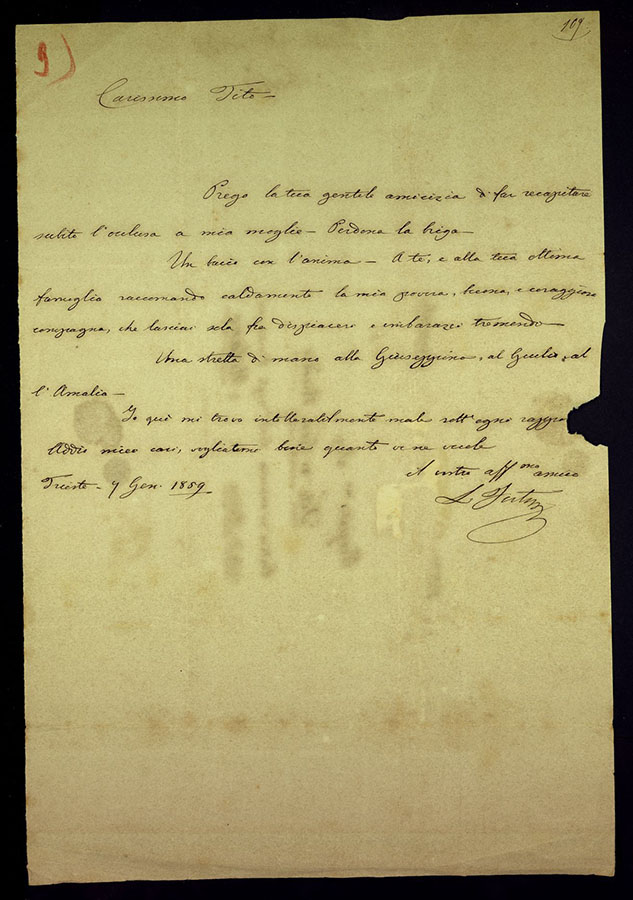 109
9)
Carissimo Tito –
Prego la tua gentile amicizia di far recapitare
subito l'acclusa a mia moglie – Perdona la briga –
Un bacio con l'anima – A te, e alla tua ottima
famiglia raccomando caldamente la mia povera, buona, e coraggiosa
compagna, che lasciai sola fra dispiaceri e imbarazzi tremendi –
Una stretta di mano alla Giuseppina, al Giulio, al
l'Amalia –
Io quì mi trovo intollerabilmente male sott'ogni rappo
Addio miei cari, vogliatemi bene quanto ve ne vuole
il vostro aff.mo amico
Trieste – 7 Gen. 1859.
L